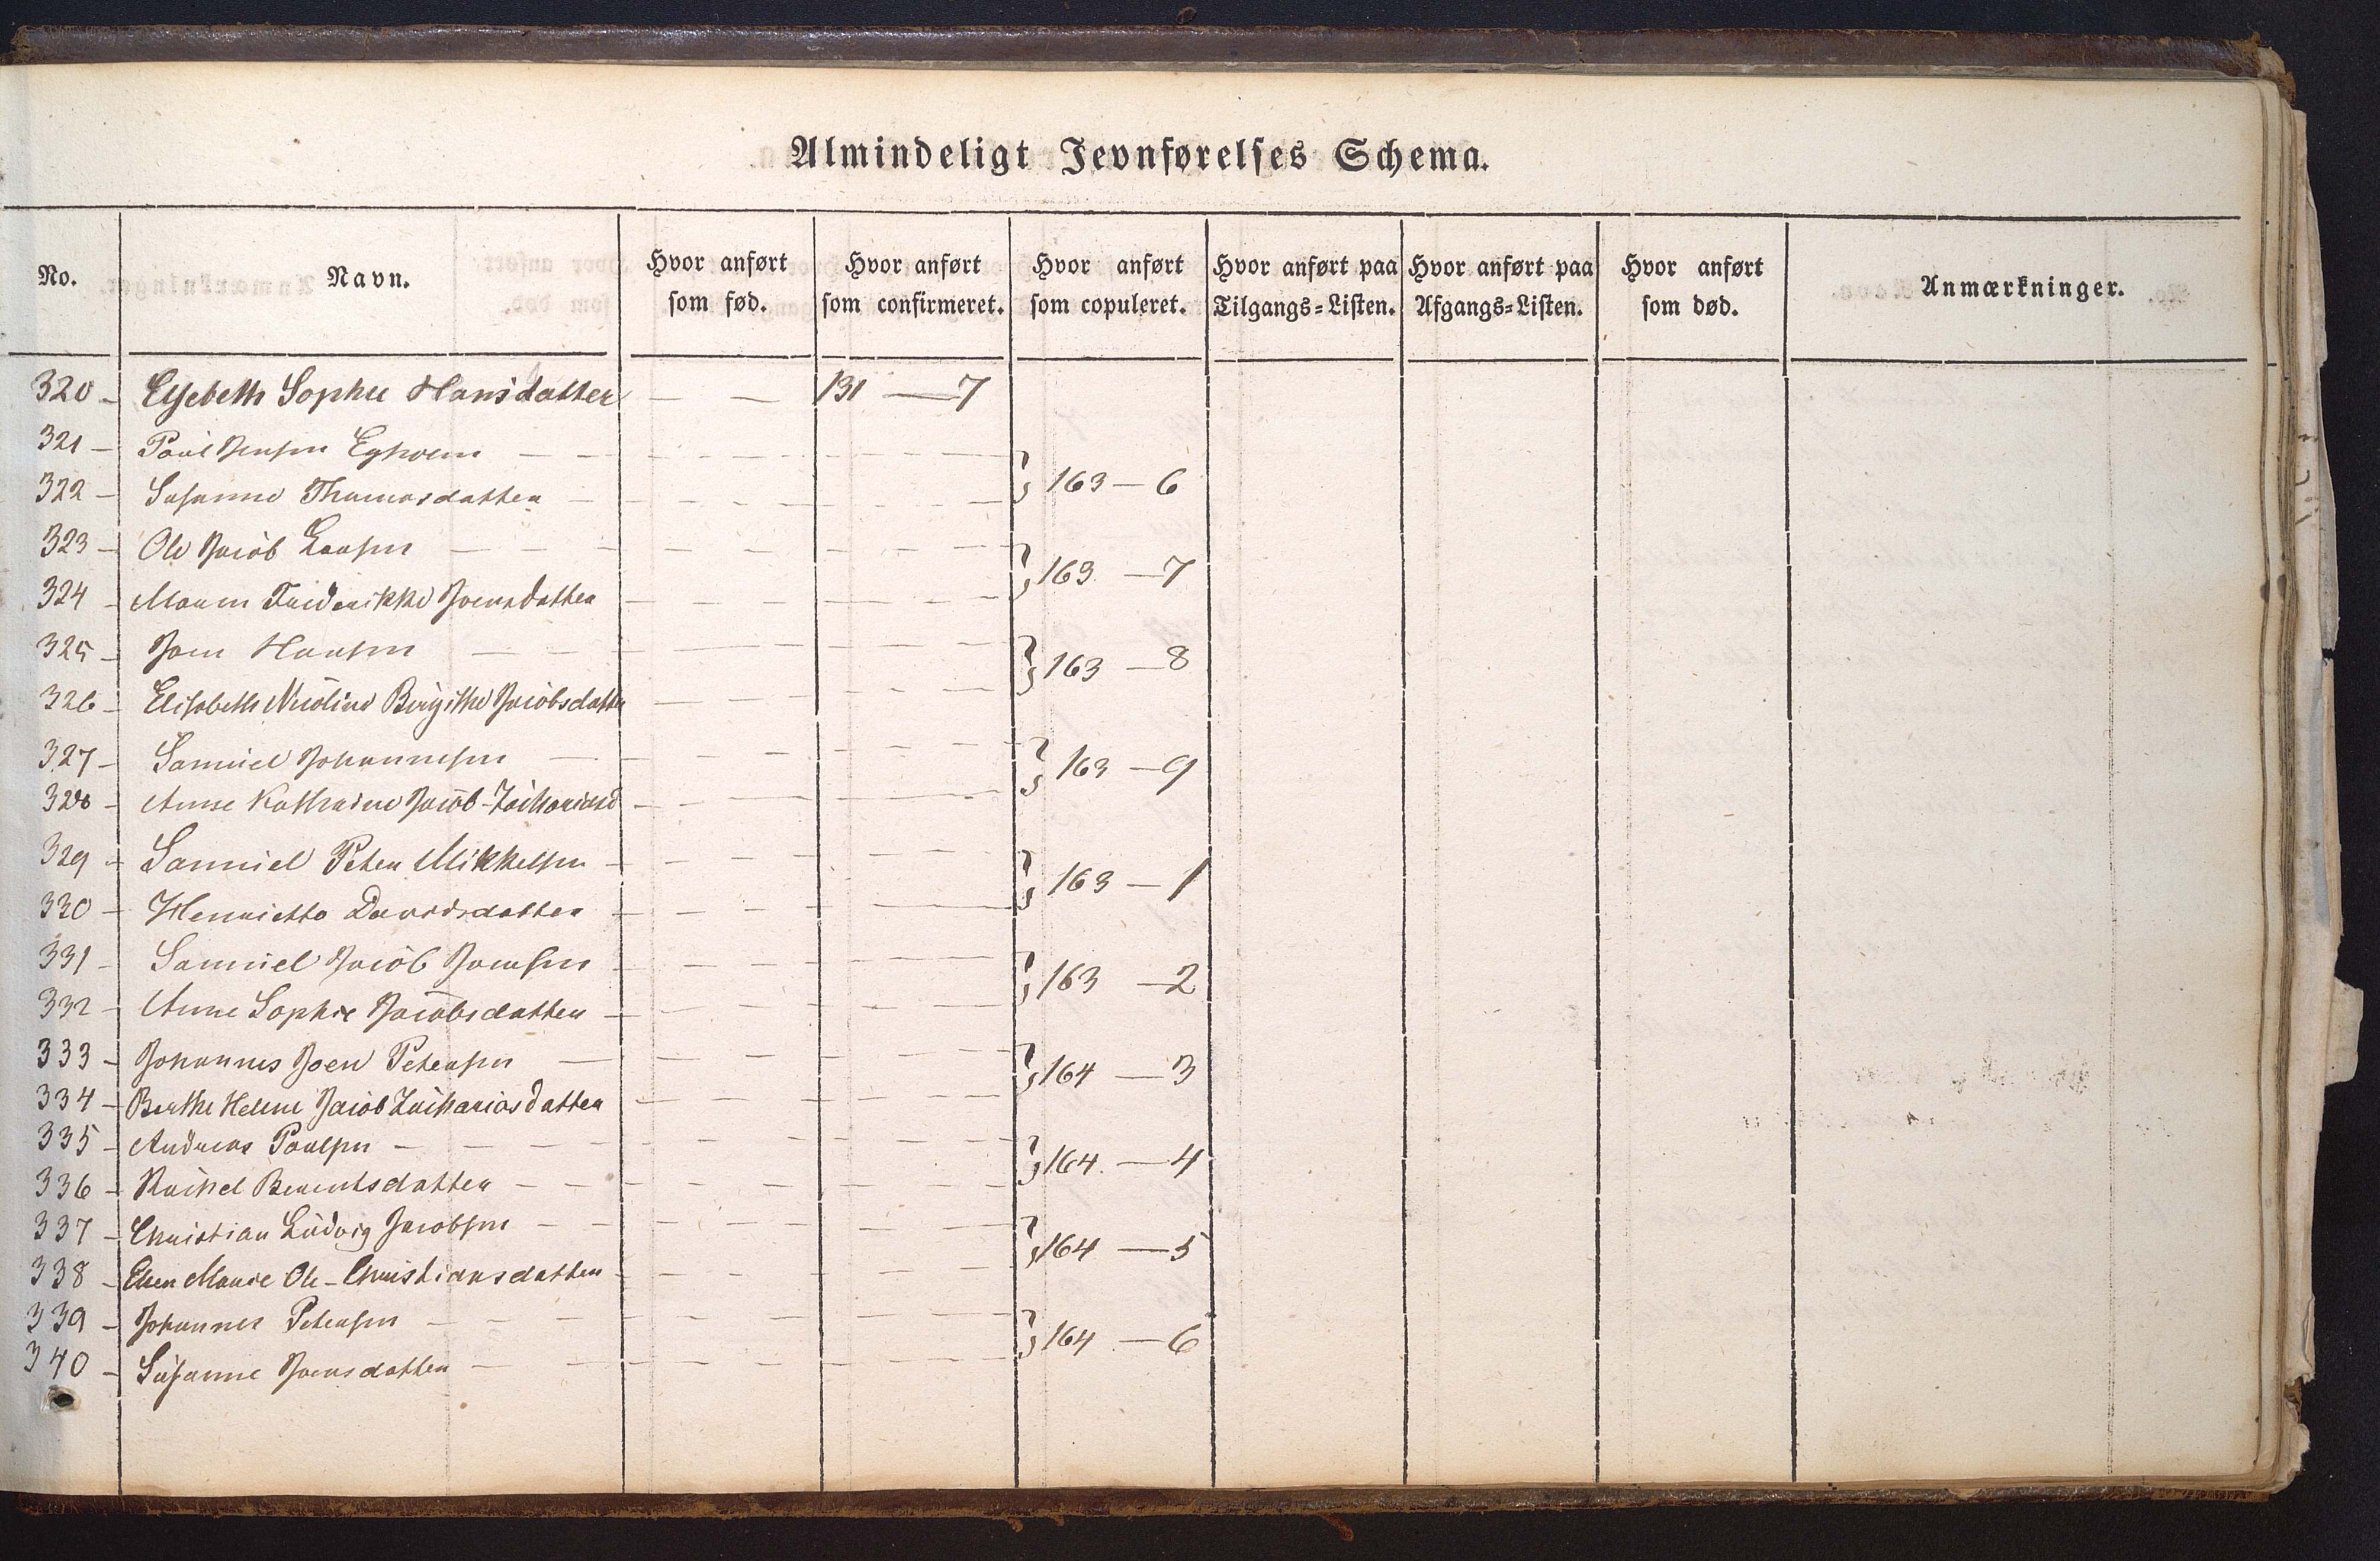 Almindeligt Jevnførelses Schema.
No. Navn. Hvor anført som fød. Hvor anført som confirmeret. Hvor anført som copuleret. Hvor anført paa Tilgangs=Listen. Hvor anført paa Afgangs=Listen. Hvor anført som død. Anmærkninger.
320 – Elsebeth Sophie Hansdatter — — 131 — 7
321 – Poul Jensen Egholm
322 – Susanne Thomasdatter } 163 – 6
323 – Ole Jacob Larsen
324 – Maren Frederikke Joensdatter } 163 – 7
325 – Joen Hansen
326 – Elisabeth Nicoline Birgithe Jacobsdatter } 163 – 8
327 – Samuel Johannesen
328 – Anne Kathrine Jacob-Zachariasd } 163 – 9
329 – Samuel Peter Mikkelsen
330 – Henriette Davidsdatter } 163 – 1
331 – Samuel Jacob Joensen
332 – Anne Sophie Jacobsdatter } 163 – 2
333 – Johannes Joen Petersen
334 – Berthe Helene Jacob Zachariasdatter } 164 – 3
335 – Andreas Poulsen
336 – Rachel Berentsdatter } 164. – 4
337 – Christian Ludvig Jacobsen
338 – Ellen Marie Ole-Christiansdatter } 164 – 5
339 – Johannes Petersen
340 – Susanne Joensdatter } 164 – 6